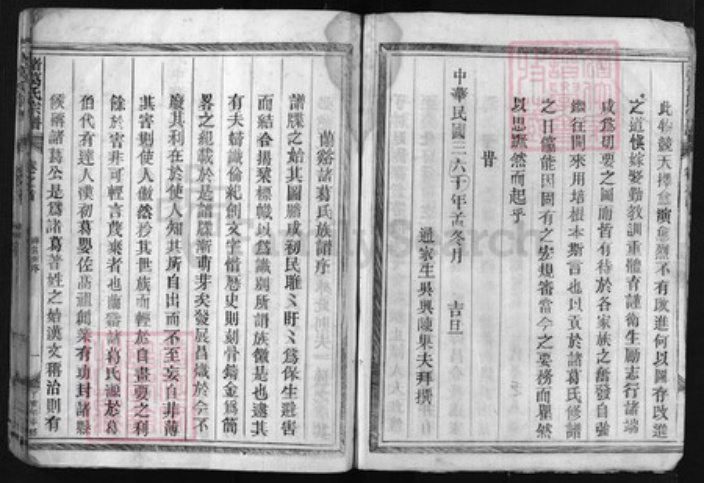 此物競天擇愈演愈烈不有改進何以圖存改進
之道慎嫁娶勤教訓重體育謹衛生勵志行諸端
咸爲切要之圖而皆有待於各家族之奮發自強
繼往開來用培根本斯言也以貢於諸葛氏修譜
之日儻能因固有之宏規審當今之要務而瞿然
以思躍然而起乎
中華民國三六年丁亥冬月 吉旦
通家生吳興陳果夫拜撰
蘭谿諸葛氏族譜序
譜牒之始其圖騰咸初民睢睢盱盱爲保生避害
而結合揭橥標幟以爲識別所謂族徽是也逮其
有夫辯識倫紀創文字惜曆史則刻骨鑄金爲簡
畧之紀載於是譜牒漸萌芽矣發展昌熾於今不
廢其利在於使人知其所自出而不至妄自菲薄
其害則使人傲然矜其世族而輕於自畫要之利
餘於害非可輕言廢棄者也蘭谿諸葛氏源於葛
伯代有達人漢初葛嬰佐高祖創業有功封諸縣
侯稱諸葛公是爲諸葛著姓之始漢文稱治則有
諸葛氏宗譜